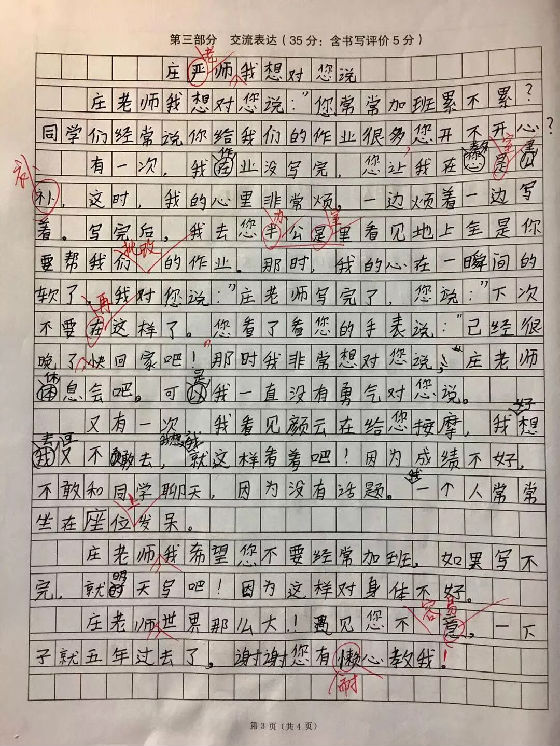 第三部分 交流表达(35分:含书写评价5分)
庄严师我想对您说
庄老师我想对您说:“您常常加班累不累?
同学们经常说你给我们的作业很多,您开不开心?
有一次,我作业没写完,您让我在
补,这时,我的心里非常烦。一边烦着一边写
着。写完后,我去您半公是里看见地上全是你
要帮我们批改的作业。那时,我的心在一瞬间的
软了,我对您说:“庄老师写完了,您说:“下次
不要在这样了。您看了看您的手表说:“已经很
晚了快回家吧!”那时我非常想对您说:“庄老师
休息会吧。可是我一直没有勇气对您说。
又有一次 我看见颜云在给您按摩,我想
去又不敢去,就这样看着吧!因为成绩不好,
不敢和同学聊天,因为没有话题。一个人常常
坐在座位上发呆。
庄老师我希望您不要经常加班,如果写不
完,就明天写吧!因为这样对身体不好。
庄老师世界那么大!遇见您不容易。一下
子就五年过去了。谢谢您有懒心教我!
耐
第3页(共4页)